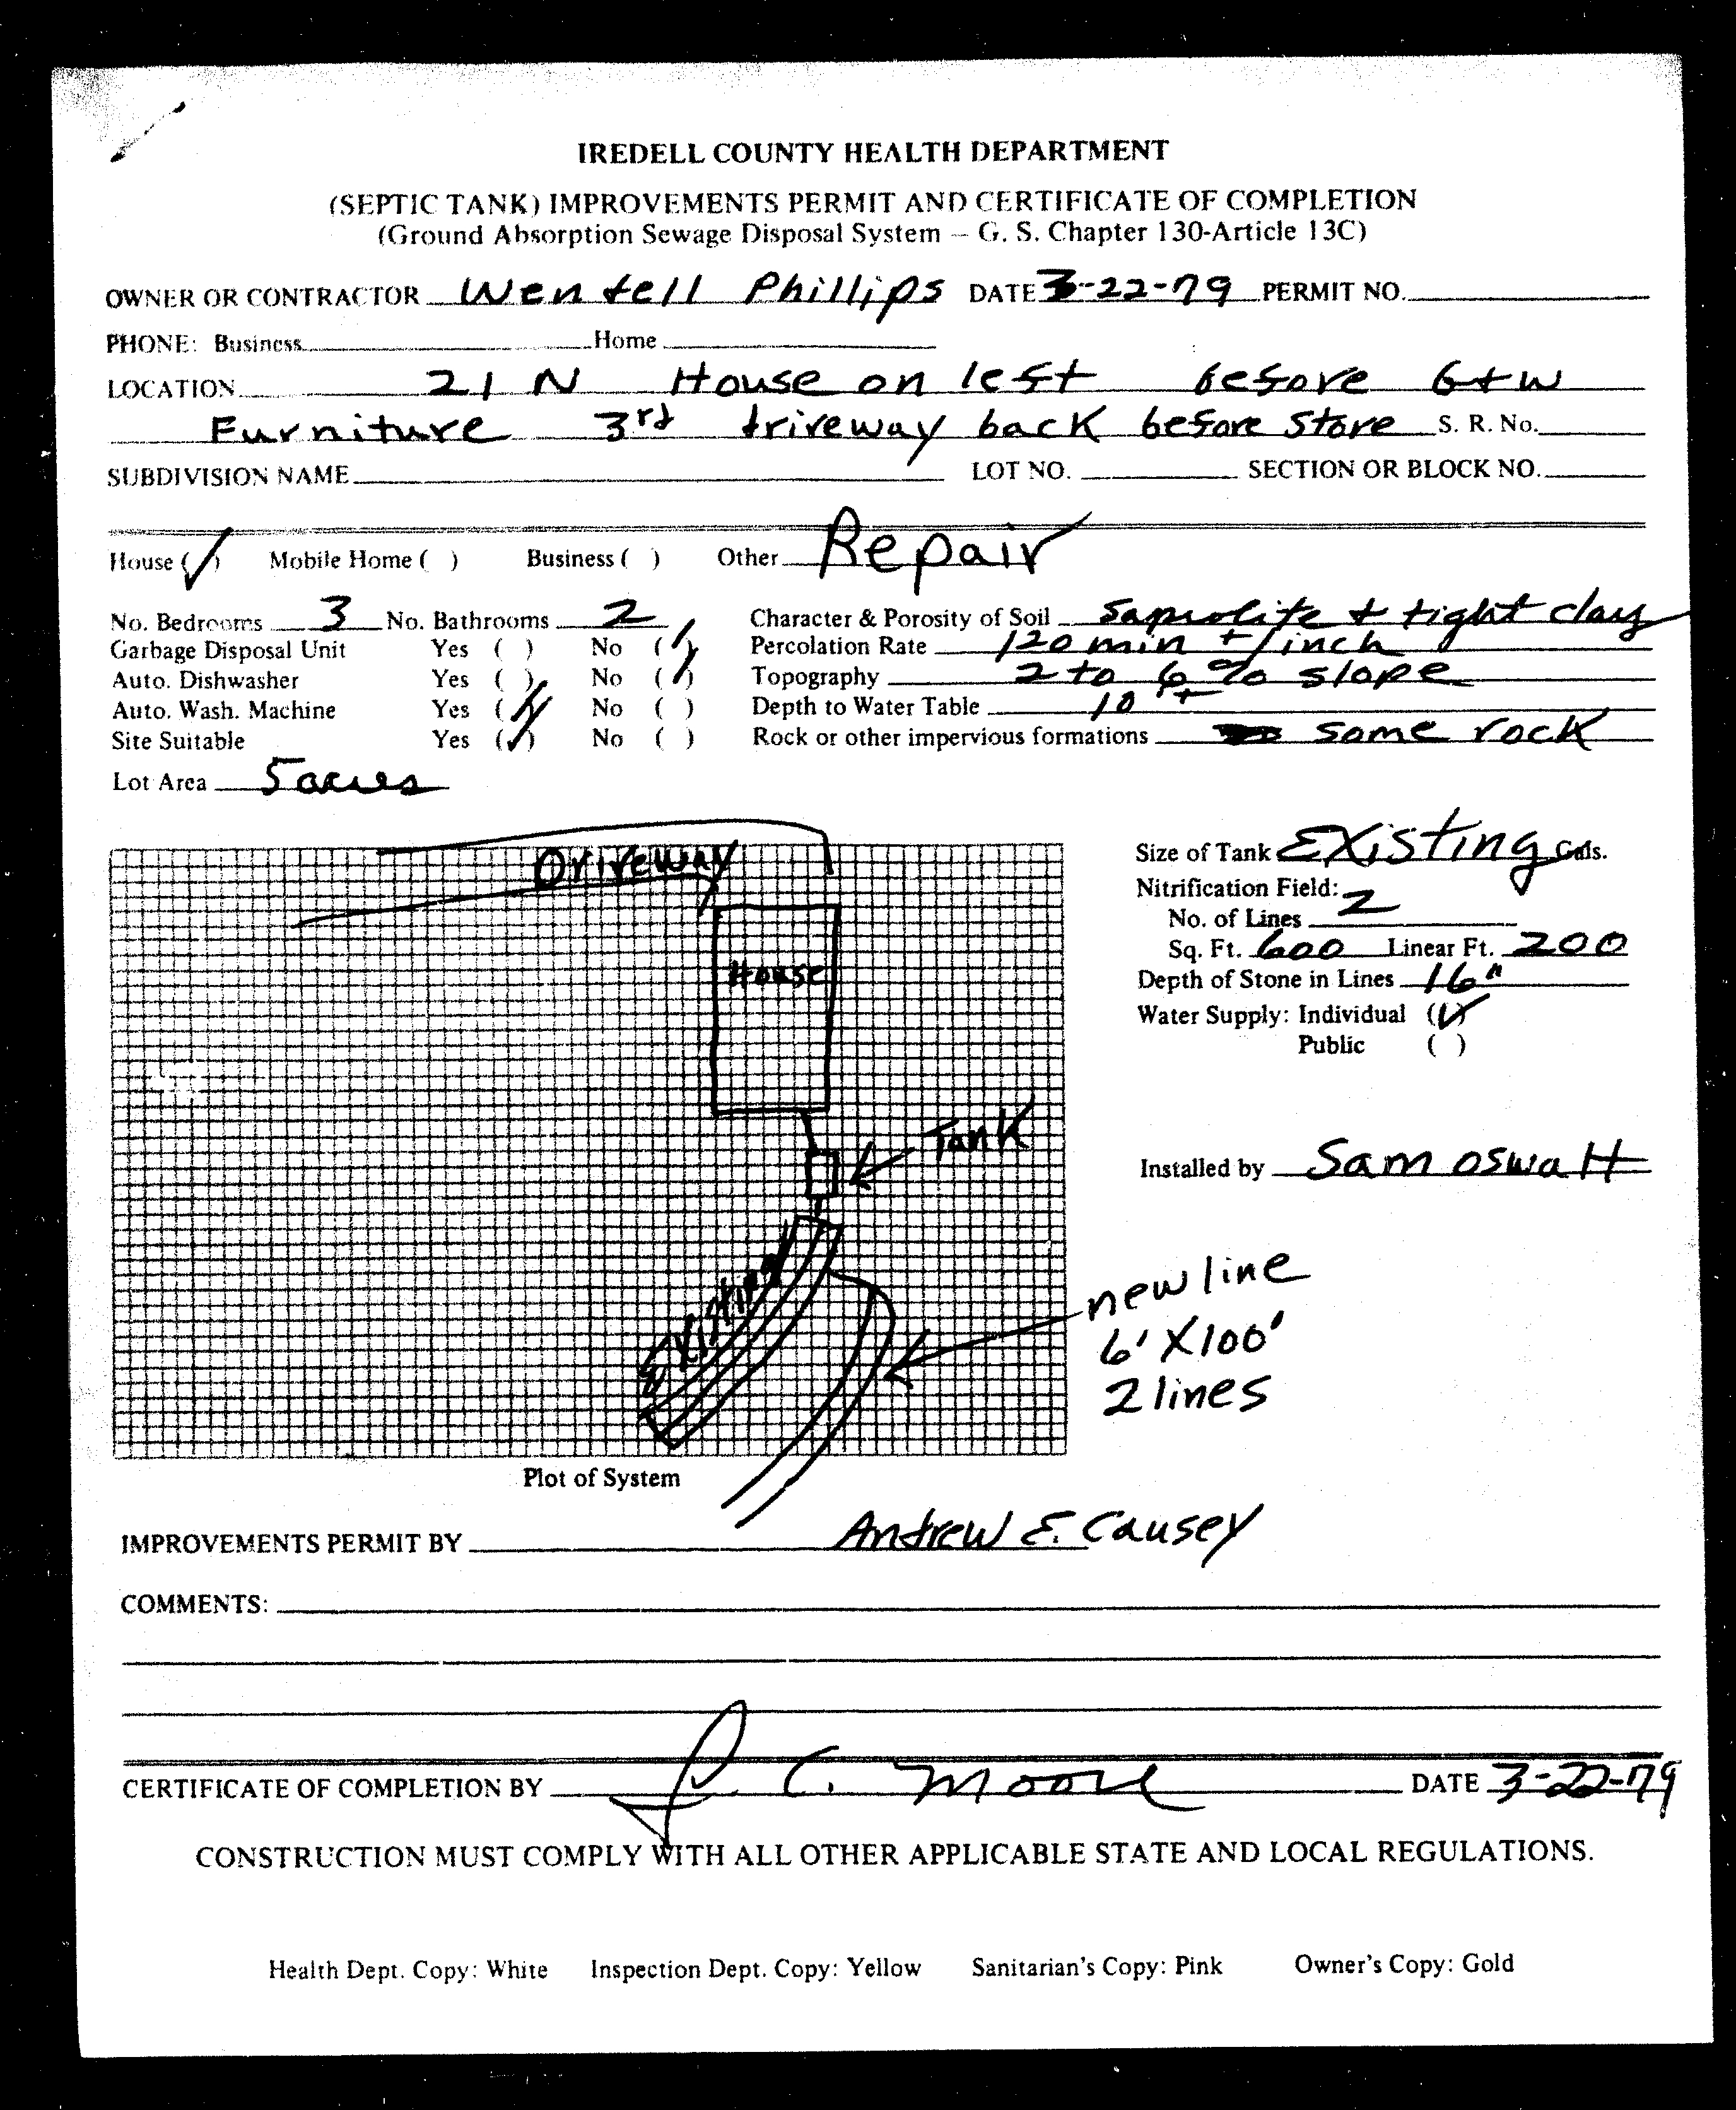 IREDELL COUNTY HEALTH DEPARTMENT
(SEPTIC TANK) IMPROVEMENTS PERMIT AND CERTIFICATE OF COMPLETION
(Ground Absorption Sewage Disposal System – G. S. Chapter 130-Article 13C)
OWNER OR CONTRACTOR Wendell Phillips DATE 3-22-79 PERMIT NO.
PHONE: Business Home
LOCATION 21 N House on left before G+W
Furniture 3rd driveway back before Store S. R. No.
SUBDIVISION NAME LOT NO. SECTION OR BLOCK NO.
House (✓) Mobile Home ( ) Business ( ) Other Repair
No. Bedrooms 3 No. Bathrooms 2 Character & Porosity of Soil Saprolite + tight clay
Garbage Disposal Unit Yes ( ) No (✓) Percolation Rate 120 min +/inch
Auto. Dishwasher Yes ( ) No (✓) Topography 2 to 6 % slope
Auto. Wash. Machine Yes (✓) No ( ) Depth to Water Table 10 +
Site Suitable Yes (✓) No ( ) Rock or other impervious formations some rock
Lot Area 5 acres
Driveway
House
Tank
Existing
Size of Tank Existing Gals.
Nitrification Field:
No. of Lines 2
Sq. Ft. 600 Linear Ft. 200
Depth of Stone in Lines 16"
Water Supply: Individual (✓)
Public ( )
Installed by Sam Oswalt
new line
6' X 100'
2 lines
Plot of System
IMPROVEMENTS PERMIT BY Andrew E. Causey
COMMENTS:
CERTIFICATE OF COMPLETION BY C. Moore DATE 3-22-79
CONSTRUCTION MUST COMPLY WITH ALL OTHER APPLICABLE STATE AND LOCAL REGULATIONS.
Health Dept. Copy: White Inspection Dept. Copy: Yellow Sanitarian's Copy: Pink Owner's Copy: Gold